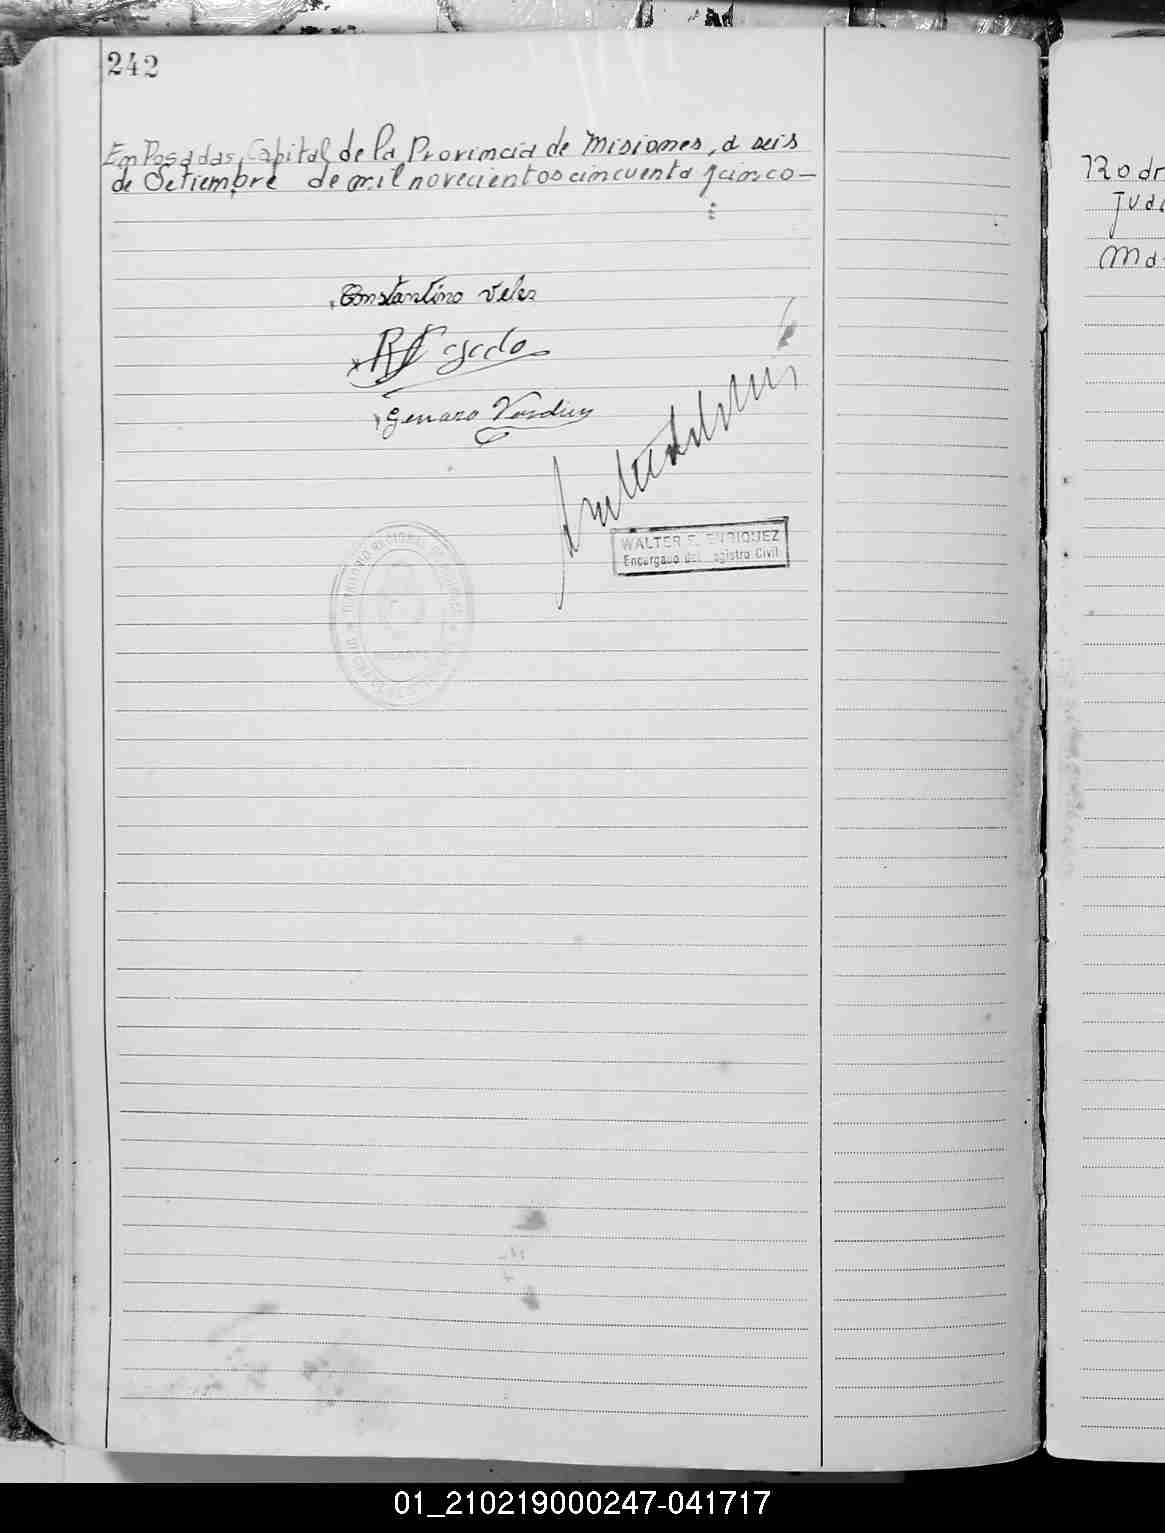 242
En Posadas, Capital de la Provincia de Misiones, a seis
de Setiembre de mil novecientos cincuenta y cinco —
Constantino Velez
Genaro Verdun
WALTER ENRIQUEZ
Encargado del Registro Civil
Rodr
Juda
Ma
01_210219000247-041717